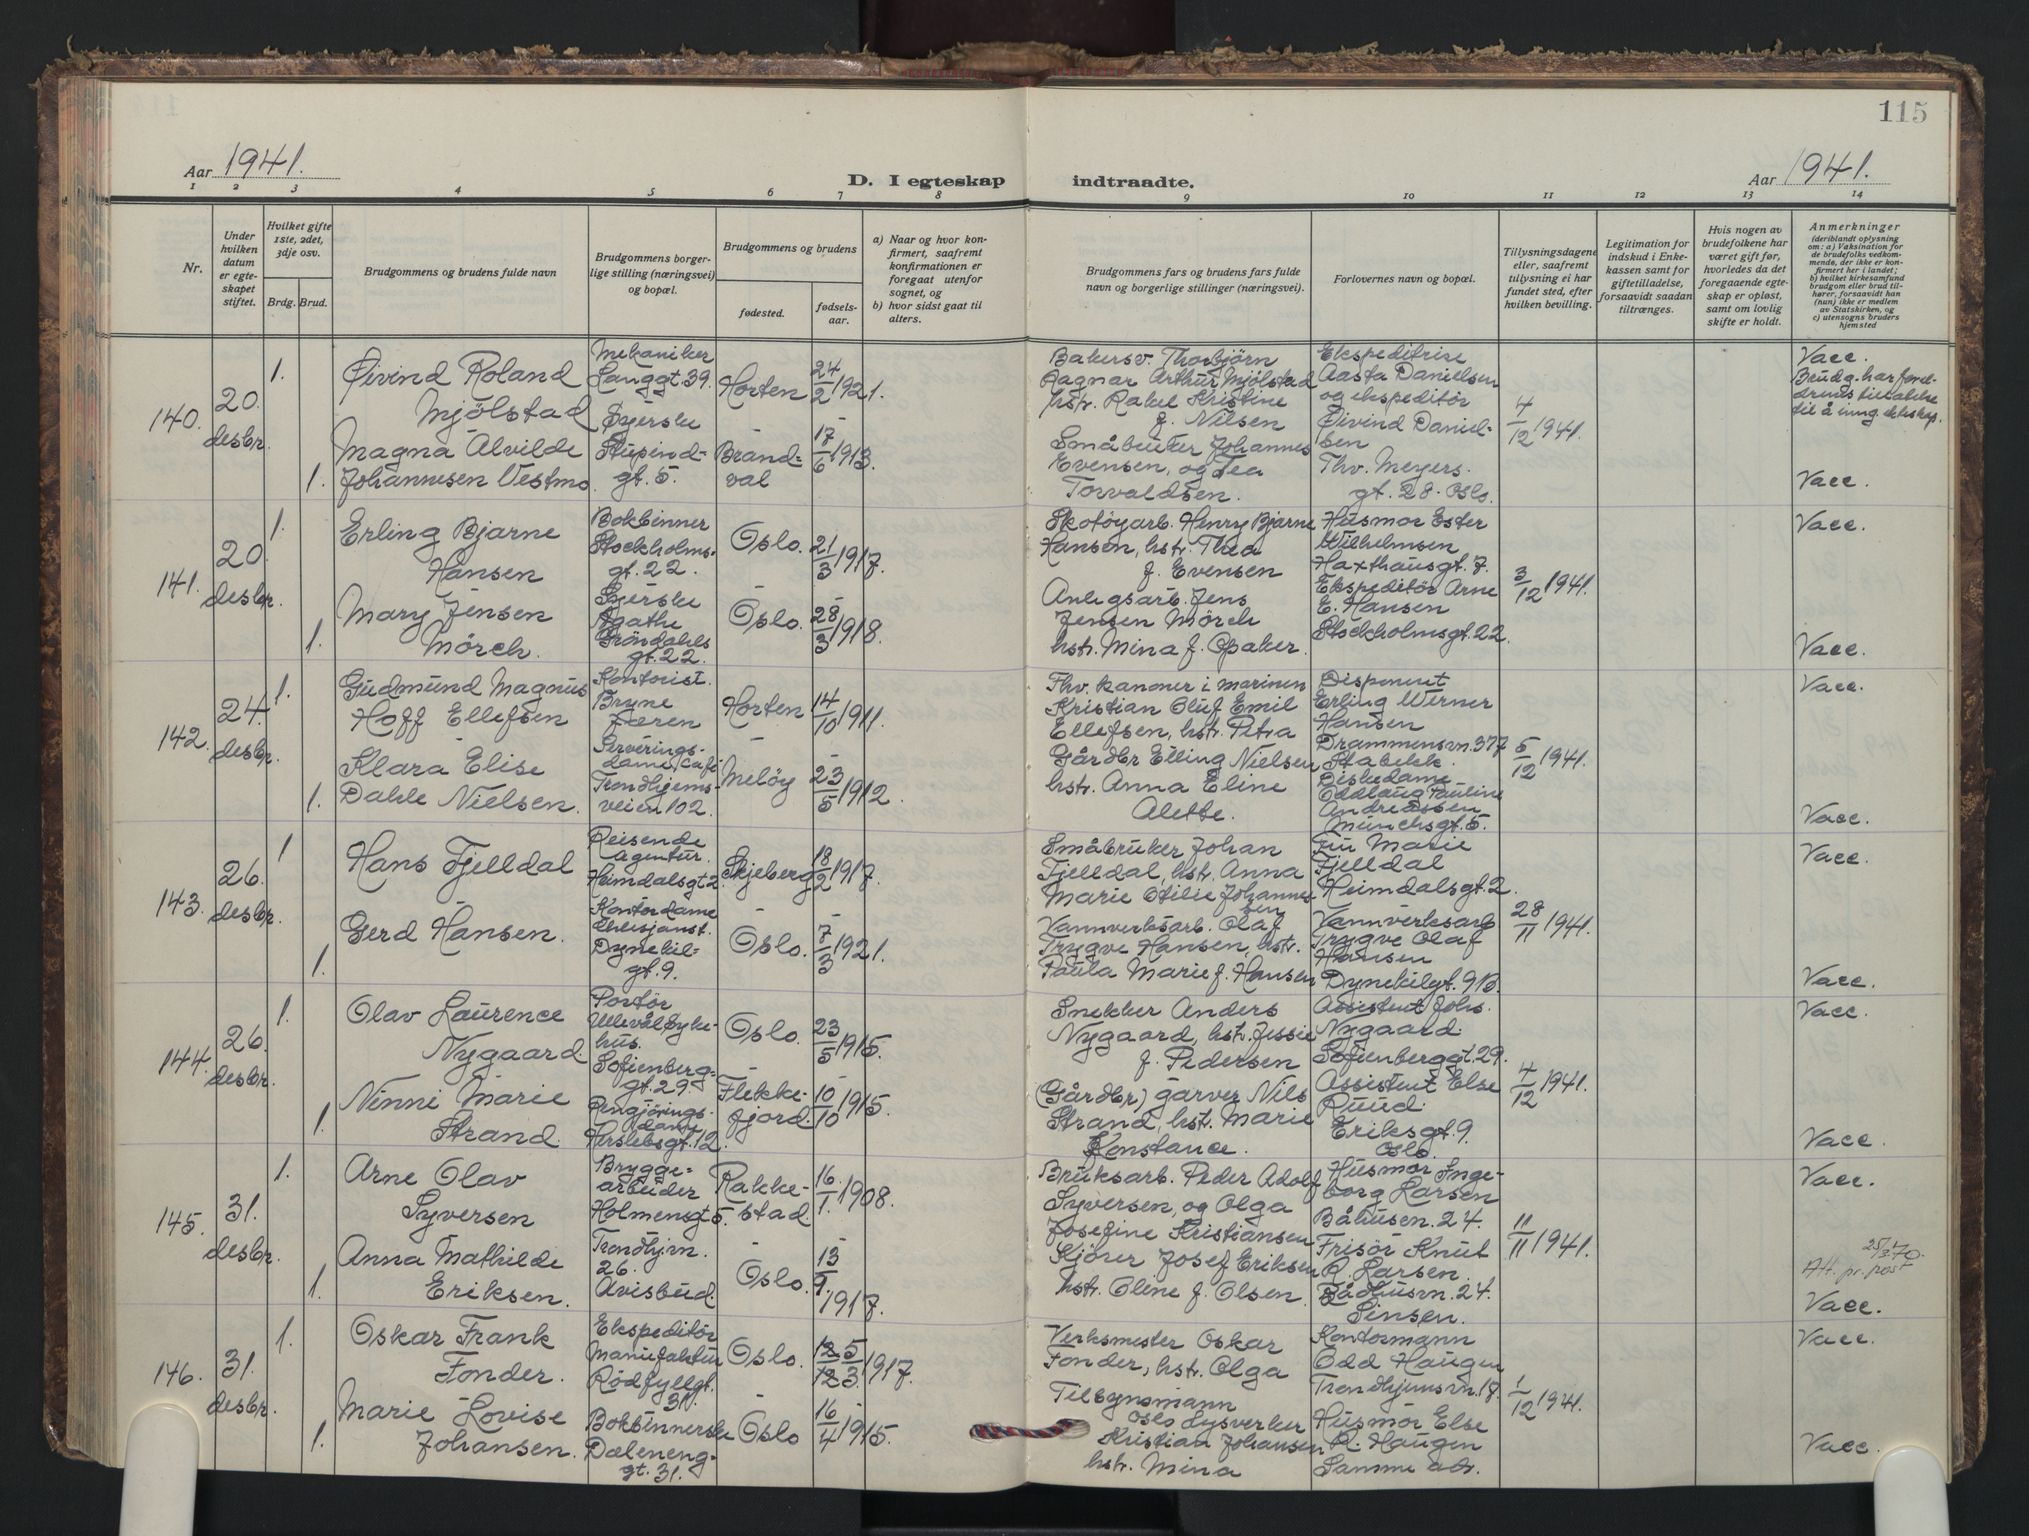 115
Aar 1941.
D. I egteskap indtraadte.
Aar 1941.
1 2 3 4 5 6 7 8 9 10 11 12 13 14
Nr.
Under hvilken datum er egteskapet stiftet.
Hvilket gifte 1ste, 2det, 3dje osv.
Brdg. Brud.
Brudgommens og brudens fulde navn
Brudgommens borgerlige stilling (næringsvei) og bopæl.
Brudgommens og brudens
fødested.
fødselsaar.
a) Naar og hvor konfirmert, saafremt konfirmationen er foregaat utenfor sognet, og
b) hvor sidst gaat til alters.
Brudgommens fars og brudens fars fulde navn og borgerlige stillinger (næringsvei).
Forlovernes navn og bopæl.
Tillysningsdagene eller, saafremt tillysning ei har fundet sted, efter hvilken bevilling.
Legitimation for indskud i Enkekassen samt for giftetilladelse, forsaavidt saadan tiltrænges.
Hvis nogen av brudefolkene har været gift før, hvorledes da det foregaaende egteskap er opløst, samt om lovlig skifte er holdt.
Anmerkninger
(deriblandt oplysning om: a) Vaksination for de brudefolks vedkommende, der ikke er konfirmert her i landet; b) hvilket kirkesamfund brudgom eller brud tilhører, forsaavidt han (hun) ikke er medlem av Statskirken, og c) utensogns bruders hjemsted
140.
20. desbr.
1.
Øivind Roland
Mjölstad
Mekaniker
Langgt. 39.
Horten
24/2 1921.
Magna Alvilde
1. Johannesen Vestmo
Syerske
Stupindgt. 5.
Brandval
17/6 1913.
Bakersv. Thorbjörn
Ragnar Arthur Mjölstad
hstr. Rakel Kristine
f. Nilsen
Småbruker Johannes
Evensen, og Tea
Torvaldsen.
Ekspeditrise
Aasta Danielsen
og ekspeditör
Øivind Danielsen
Thv. Meyers.
gt. 28. Oslo.
4/12 1941.
Vacc.
Brudg. har foreldrenes tillatelse
til å inng. ekteskap.
Vacc.
141.
20 desbr.
1.
Erling Bjarne
Hansen
Bokbinner
Stockholmsgt. 22.
Oslo.
21/3 1917.
Mary Jensen
1. Mörch.
Syerske
Agathe
Gröndahls
gt. 22.
Oslo.
28/3 1918.
Skotöyarb. Henry Bjarne
Hansen, hstr. Thea
f. Evensen
Anlegsarb. Jens
Jensen Mörch
hstr. Mina f. Opaker.
Husmor Ester
Wilhelmsen
Haxthausgt. 7.
Ekspeditör Arne
E. Hansen
Stockholmsgt. 22.
3/12 1941.
Vacc.
Vacc.
142.
24. desbr.
1.
Gudmund Magnus
Hoff Ellefsen
Kontorist.
Bryne
Jæren
Horten
14/10 1911.
Klara Elise
1. Dahle Nielsen.
Serveringsdame, Café
Trondhjemsveien 102.
Melöy
23/5 1912.
Thv. kanoner i marinen
Kristian Oluf Emil
Ellefsen, hstr. Petra
Gårdbr Elling Nielsen
hstr. Anna Eline
Alette.
Disponent
Erling Werner
Hansen
Drammensvn. 377
Stabekk.
Diskedame
Oddlaug Pauline
Andreassen
Munchsgt. 5.
5/12 1941.
Vacc.
Vacc.
143.
26. desbr.
1
Hans Fjelldal
Reisende
Agentur.
Heimdalsgt 2.
Skjeberg
18/2 1917.
Gerd Hansen.
1.
Kontordame
Dynekilgt. 9.
Oslo.
7/3 1921.
Småbruker Johan
Fjelldal, hstr. Anna
Marie Otilie Johannessen
Vannverksarb. Olaf
Trygve Hansen, hstr.
Paula Marie f. Hansen
Fru Marie
Fjelldal
Heimdalsgt. 2.
Vannverksarb
Trygve Olaf
Hansen
Dynekilgt. 9B.
28/11 1941.
Vacc.
Vacc.
144.
26. desbr.
1.
Olav Laurence
Nygaard.
Portör
Ullevål Sykehus.
Sofienberggt. 29.
Oslo.
23/5 1915.
Ninni Marie
1. Strand.
Rengjöringsdame
Herslebsgt. 12.
Flekkefjord.
10/10 1915.
Snekker Anders
Nygaard, hstr. Jessie
f. Pedersen
(Gårdbr) garver Nils
Strand, hstr. Marie
Konstance.
Assistent Johs.
Nygaard.
Sofienberggt. 29.
Assistent Else
Ruud.
Eriksgt. 9.
Oslo.
4/12 1941.
Vacc.
Vacc.
145.
31. desbr.
1.
Arne Olav
Syversen
Bryggearbeider
Holmensgt 5.
Rakkestad
16/1 1908.
Anna Mathilde
1. Eriksen.
Trondhjvn.
26.
Avisbud.
Oslo.
13/9 1917.
Bruksarb. Peder Adolf
Syversen, og Olga
Josefine Kristiansen
Kjörer Josef Eriksen
hstr. Oline f. Olsen.
Husmor Ingeborg Larsen
Båhusvn. 24.
Frisör Knut
R. Larsen.
Bådhusvn. 24.
Sinsen.
11/11 1941.
Vacc.
25/3.70.
Att. pr. post
Vacc.
146.
31. desbr.
1.
Oskar Frank
Fonder.
Ekspeditör
Manufaktur
Rødfyllgt.
31.
Oslo.
12/12 5/3 1917.
Marie Lovise
1. Johansen.
Bokbinnerske
Dælenenggt. 31.
Oslo
16/4 1915.
Verksmester Oskar
Fonder, hstr. Olga
Tilsynsmann
Oslo Lysverker
Kristian Johansen
hstr. Mina
Kontormann
Odd Haugen
Trondhjemsvn. 18.
Husmor Else
R. Haugen
Samme adr.
1/12 1941.
Vacc.
Vacc.